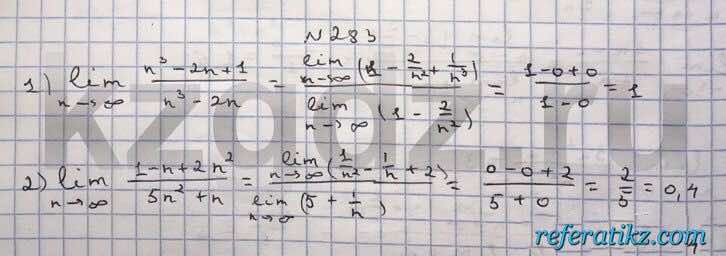 N 283
1) lim n→∞ (n³ - 2n + 1)/(n³ - 2n) = lim n→∞ (1 - 2/n² + 1/n³) / lim n→∞ (1 - 2/n²) = (1 - 0 + 0)/(1 - 0) = 1
2) lim n→∞ (1 - n + 2n²)/(5n² + n) = lim n→∞ (1/n² - 1/n + 2) / lim n→∞ (5 + 1/n) = (0 - 0 + 2)/(5 + 0) = 2/5 = 0,4
kzgdz.ru
referatikz.com